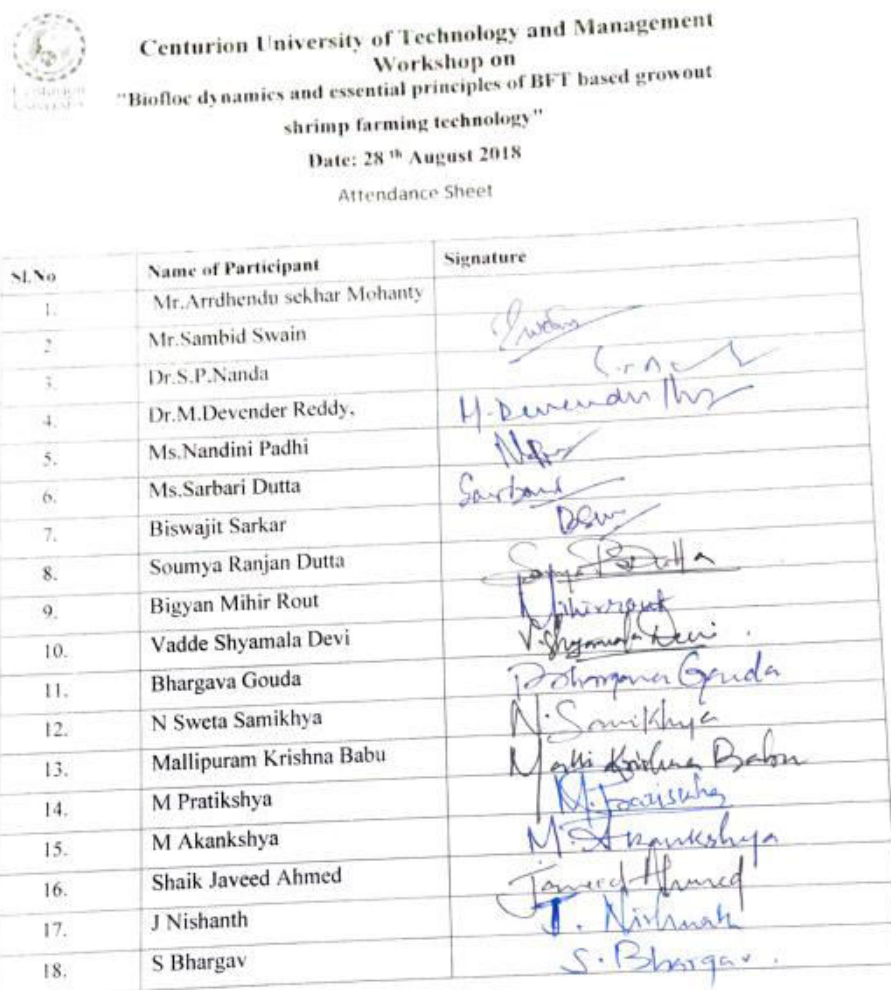 Centurion University of Technology and Management
Workshop on
"Biofloc dynamics and essential principles of BFT based growout
shrimp farming technology"
Date: 28 th August 2018
Attendance Sheet
Sl.No Name of Participant Signature
1. Mr.Arrdhendu sekhar Mohanty
2. Mr.Sambid Swain
3. Dr.S.P.Nanda
4. Dr.M.Devender Reddy.
5. Ms.Nandini Padhi
6. Ms.Sarbari Dutta
7. Biswajit Sarkar
8. Soumya Ranjan Dutta Dutta
9. Bigyan Mihir Rout Mihir rout
10. Vadde Shyamala Devi V. Shyamala Devi .
11. Bhargava Gouda Gouda
12. N Sweta Samikhya N. Samikhya
13. Mallipuram Krishna Babu Malli Krishna Babu
14. M Pratikshya M.
15. M Akankshya M. Akankshya
16. Shaik Javeed Ahmed Javeed Ahmed
17. J Nishanth J.
18. S Bhargav S. Bhargav .